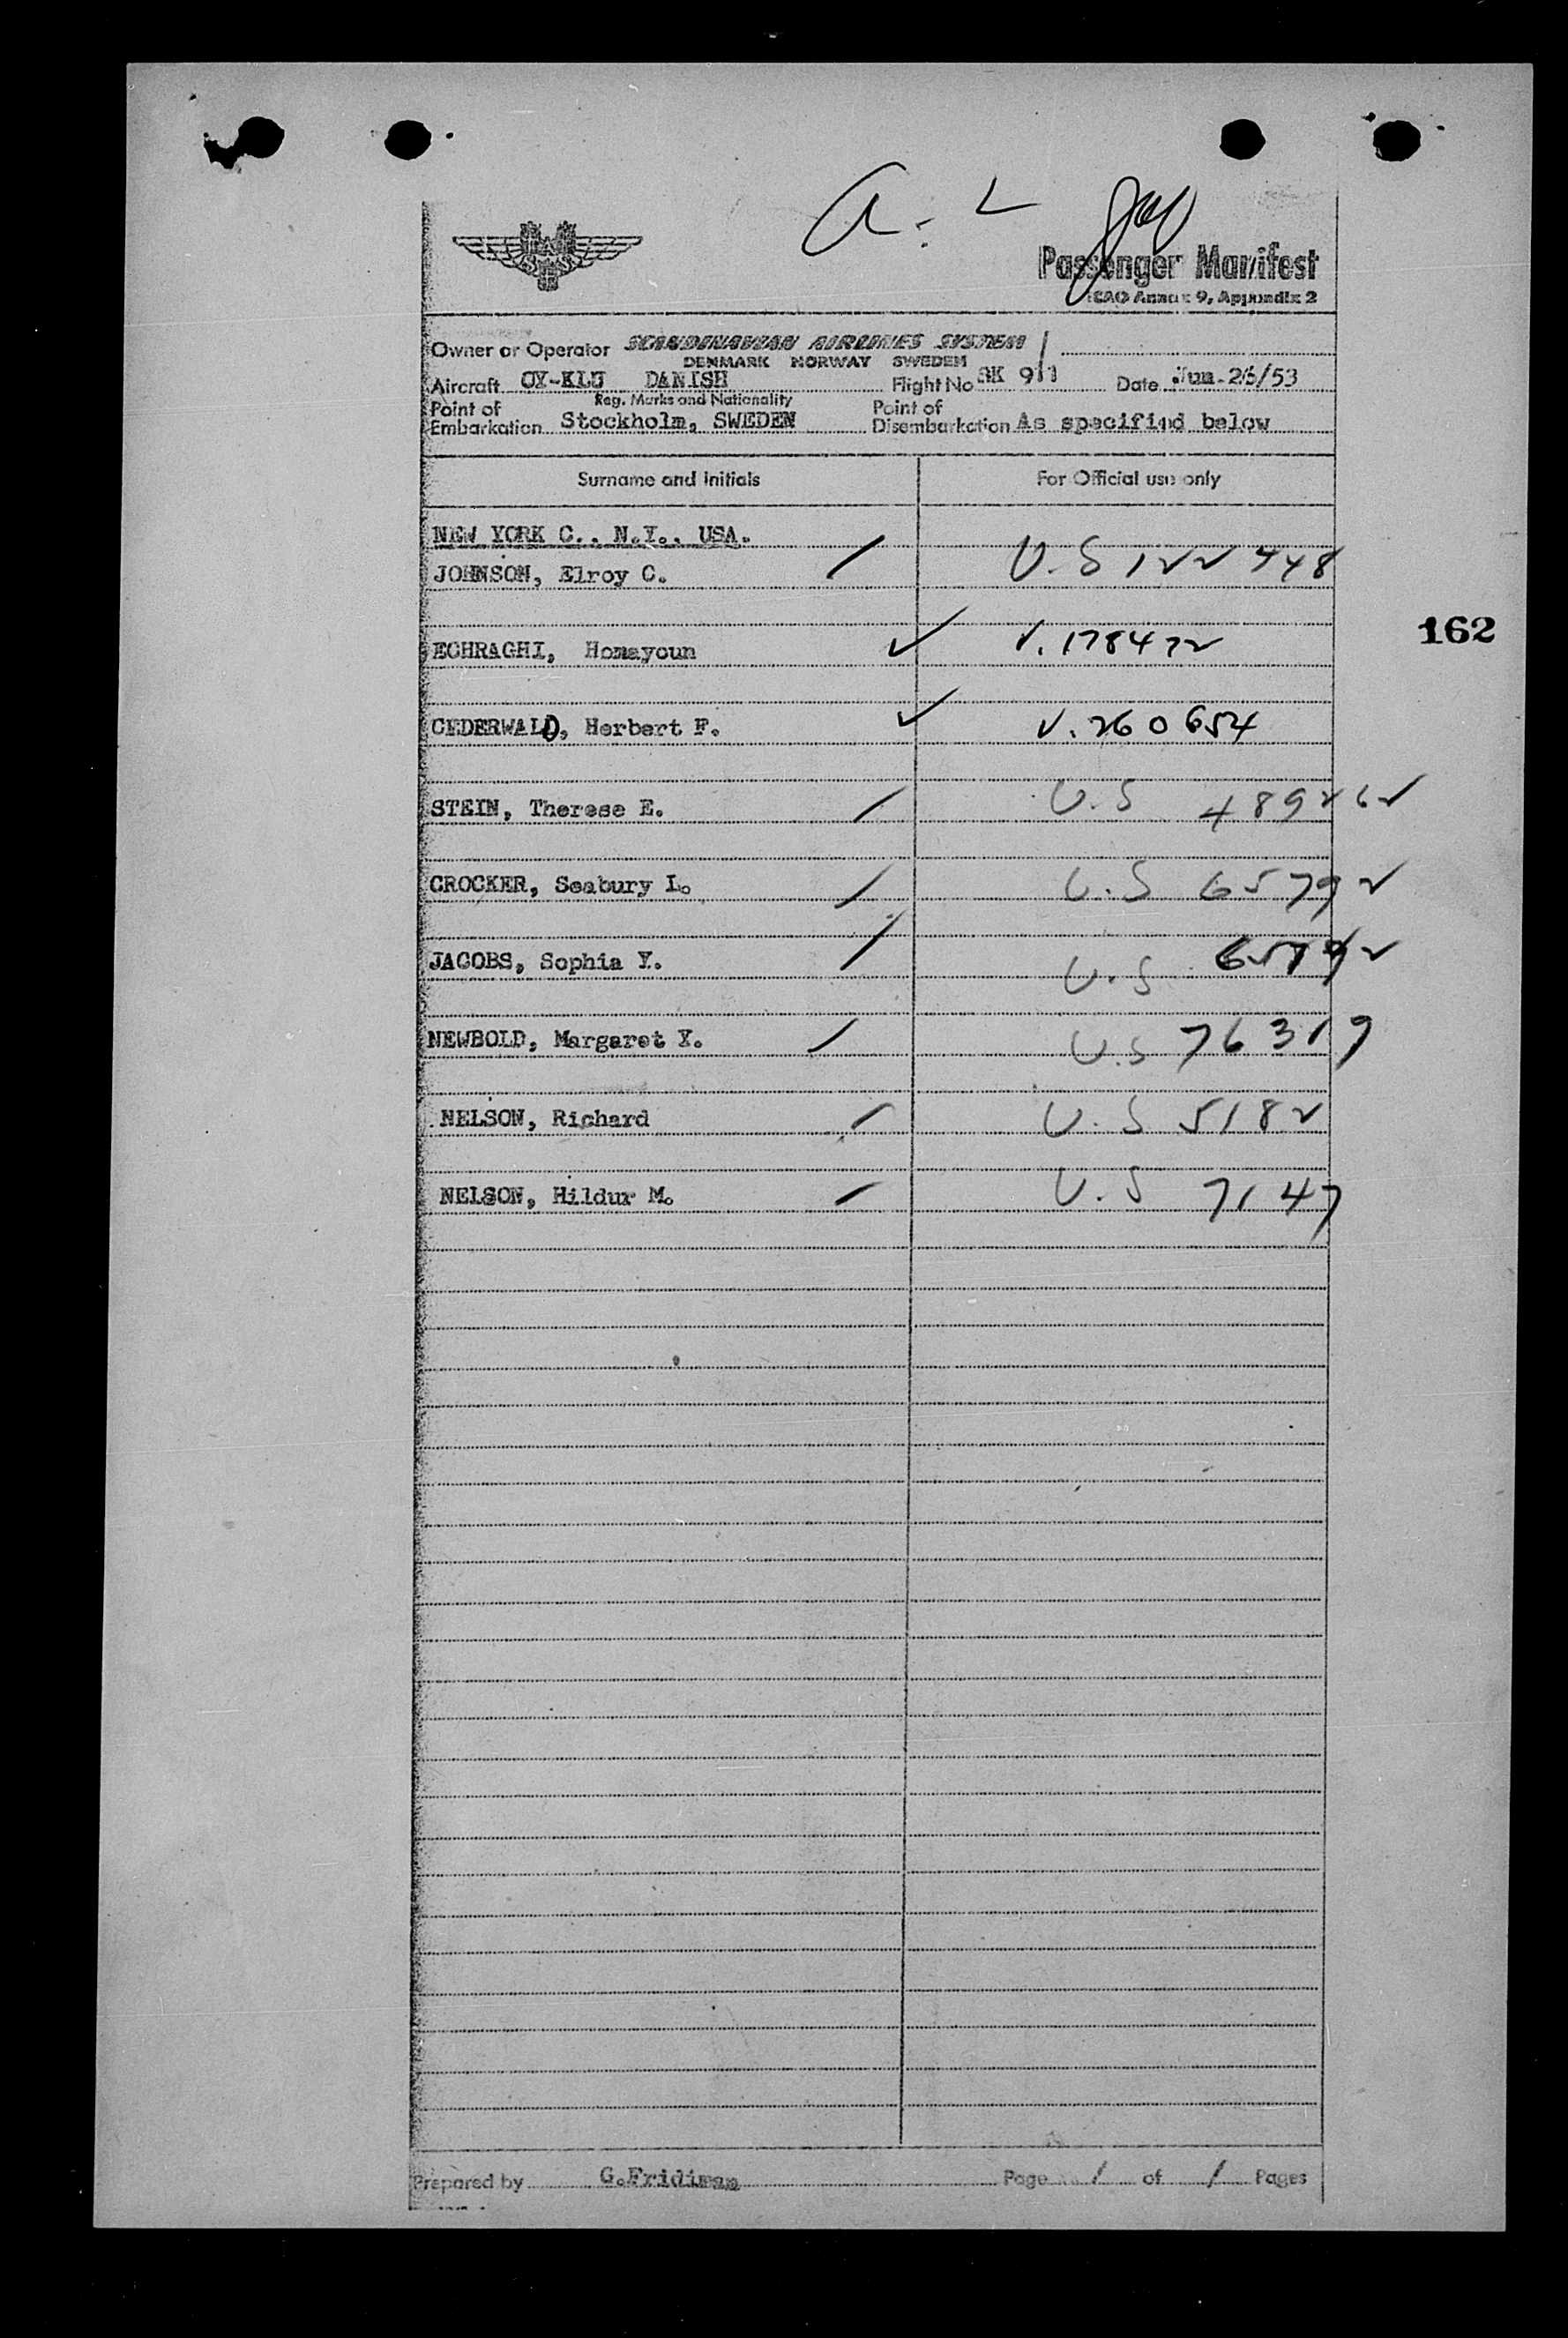 SAS
Passenger Manifest
ICAO Annex 9, Appendix 2
Owner or Operator SCANDINAVIAN AIRLINES SYSTEM
DENMARK NORWAY SWEDEN
Aircraft OY-KLU DANISH Flight No SK 911 Date Jun.26/53
Reg. Marks and Nationality
Point of Embarkation Stockholm, SWEDEN Point of Disembarkation As specified below
Surname and Initials For Official use only
NEW YORK C., N.Y., USA.
JOHNSON, Elroy C. U.S 122948
162
ECHRAGHI, Homayoun V. 178472
CEDERWALD, Herbert F. V. 260654
STEIN, Therese E. U.S 489262
CROCKER, Seabury L. U.S 65792
JACOBS, Sophia Y. U.S 65792
NEWBOLD, Margaret Y. U.S 76319
NELSON, Richard U.S 5182
NELSON, Hildur M. U.S 7147
Prepared by G.Fridiman Page 1 of 1 Pages